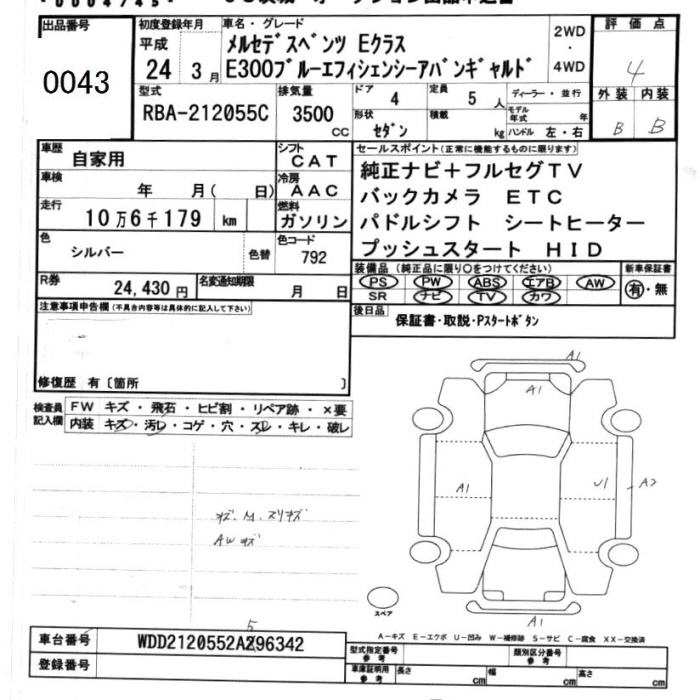 出品番号
0043
初度登録年月
平成
24 3 月
車名・グレード
メルセデスベンツ Eクラス
E300ブルーエフィシェンシーアバンギャルド
2WD
・
4WD
評価点
4
外装 内装
B B
型式
RBA-212055C
排気量
3500
CC
ドア
4
定員
5 人
ディーラー・並行
形状
セダン
積載
kg
モデル年式 年
ハンドル 左・右
車歴
自家用
シフト
CAT
車検
年 月( 日)
冷房
AAC
走行
10万6千179 km
燃料
ガソリン
色
シルバー
色替
色コード
792
R券
24,430 円
名変通知期限
月 日
セールスポイント(正常に機能するものに限ります)
純正ナビ+フルセグTV
バックカメラ ETC
パドルシフト シートヒーター
プッシュスタート HID
装備品(純正品に限り○をつけてください)
PS PW ABS エアB AW
SR ナビ TV カワ
新車保証書
有・無
後日品
保証書・取説・Pスタートボタン
注意事項申告欄(不具合内容等は具体的に記入して下さい)
修復歴 有〔箇所 〕
検査員
記入欄
FW キズ・飛石・ヒビ割・リペア跡・×要
内装 キズ・汚レ・コゲ・穴・スレ・キレ・破レ
AWキズ
A1
A1
A1
U1
A2
A1
スペア
A-キズ E-エクボ U-凹み W-補修跡 S-サビ C-腐食 XX-交換済
車台番号
5
WDD2120552A296342
登録番号
型式指定番号
参考
類別区分番号
参考
車庫証明用
参考
長さ
cm
幅
cm
高さ
cm